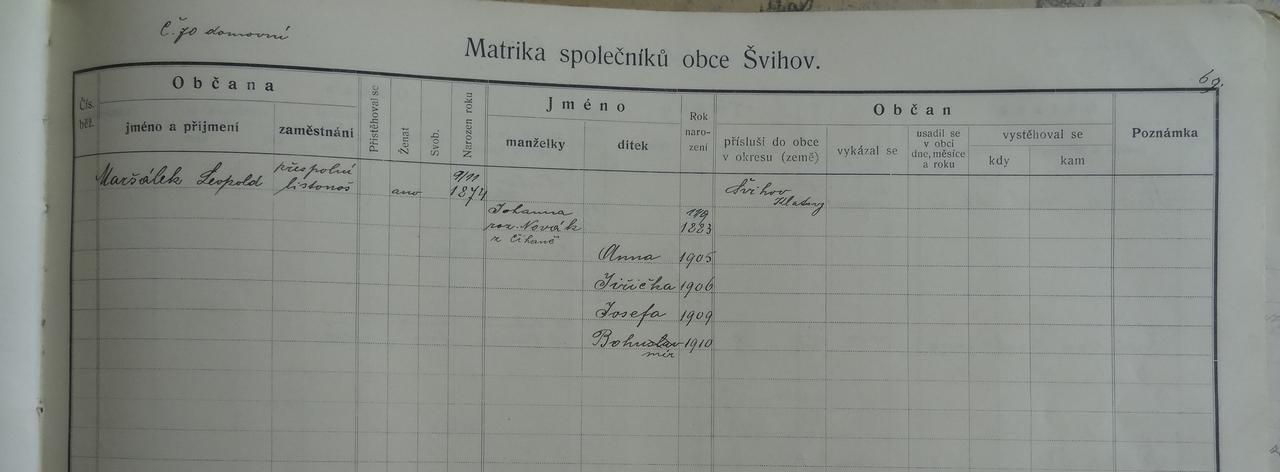 Č. 70 domovní
Matrika společníků obce Švihov.
69.
Čís. běž.
Občana
jméno a příjmení
zaměstnání
Přistěhoval se
Ženat
Svob.
Narozen roku
Jméno
manželky
dítek
Rok naro- zení
Občan
přísluší do obce v okresu (země)
vykázal se
usadil se v obci dne, měsíce a roku
vystěhoval se
kdy
kam
Poznámka
Maršálek Leopold
přespolní
listonoš
ano
9/11
1874
Švihov
Klatovy
Johanna
roz. Novák
z Číhaně
1883
Anna 1905
Jiřička 1906
Josefa 1909
Bohuslav 1910
mír